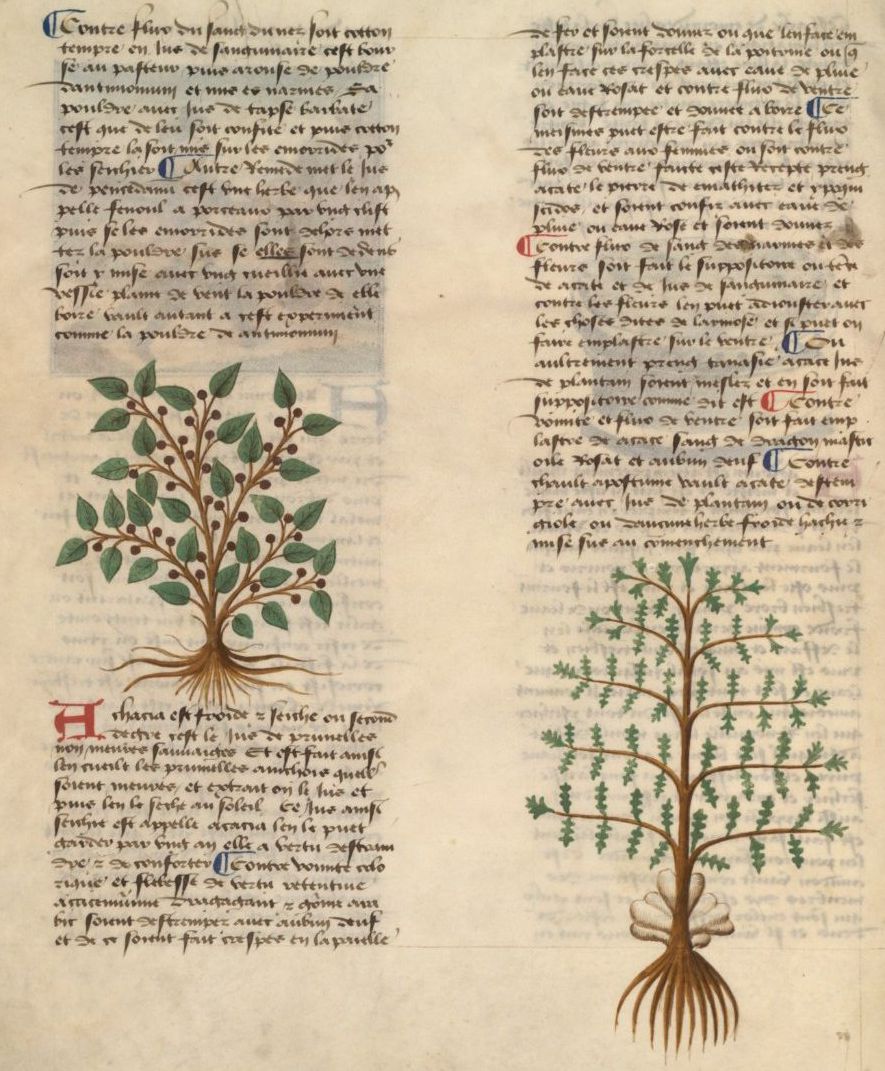 Contre fluo du sang du nez soit cotton
tempre en Jus de sanguinaire cest bour
se au pasteur puis arouse de pouldre
dantimonium et mis es narines La
pouldre avec Jus de tapse barbate
cest que de leu soit confite et puis cotton
tempre la soit mis sur les emorrides po
les seichier Autre Remede met le Jus
de pencedanu cest une herbe que len ap
pelle fenoul a porceaux par ung clist
puis se les emorrides sont dehors met
tez la pouldre sus se elles sont dedens
soit y mise avec ung cueillier avec une
vessie plaine de vent la pouldre de elle
boire vault autant a cest experiment
comme la pouldre de antimonium
Achacia est froide et seiche ou second
degre cest le Jus de prunelles
non meures sauvaiges Et est fait ainsi
len cueilt les prunelles ainchois quelles
soient meures et extrait on le Jus et
puis len le seche au soleil Ce Jus ainsi
seichie est appelle acacia len le puet
garder par ung an elle a vertu destrain
dre et de conforter Contre vomite colo
rique et flebesse de vertu retentive
acacie mumie dragagant et gome ara
bic soient destrempez avec aubun deuf
et de ce soient fait crespes en la paielle
de fer et soient donnez ou que len face em
plastre sur la forcelle de la poitrine ou q
len face ces crespes avec eaue de pluie
ou eaue Rosat et contre fluo de ventre
soit destrempee et donnee a boire Ce
meismes puet estre fait contre le fluo
des fleurs aux femmes ou soit contre
fluo de ventre faicte ceste Recepte preng
acate le pierre de emathiter et ypoqui
scidos et soient confiz avec eaue de
pluie ou eaue Rose et soient donnez
Contre fluo de sang des narines et des
fleurs soit fait le suppositoire ou
de acate et de Jus de sanguinaire et
contre les fleurs len puet adiouster avec
les choses dites de larmose et si puet on
faire emplastre sur le ventre Ou
aultrement preng tanasie acace Jus
de plantain soient meslez et en soit fait
suppositoire comme dit est Contre
vomite et fluo de ventre soit fait emp
lastre de acace sang de dragon mastic
oile Rosat et aubun deuf Contre
chault apostume vault acate destem
pre avec Jus de plantain ou de corri
giole ou daucune herbe froide hachie et
mise sus au comenchement